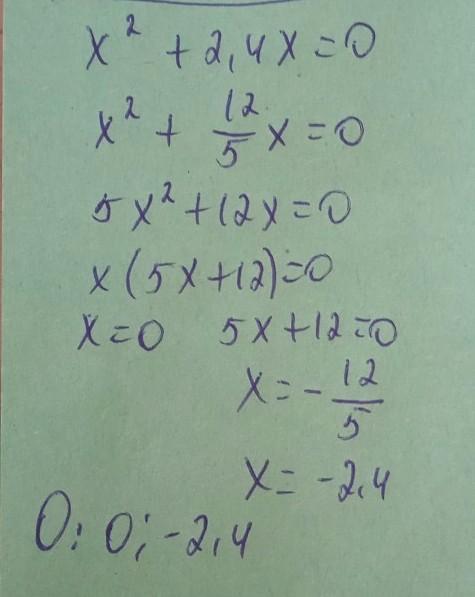 x² + 2,4x = 0
x² + 12/5 x = 0
5x² + 12x = 0
x(5x+12)=0
x=0 5x+12=0
x = - 12/5
x = -2,4
О: 0; -2,4